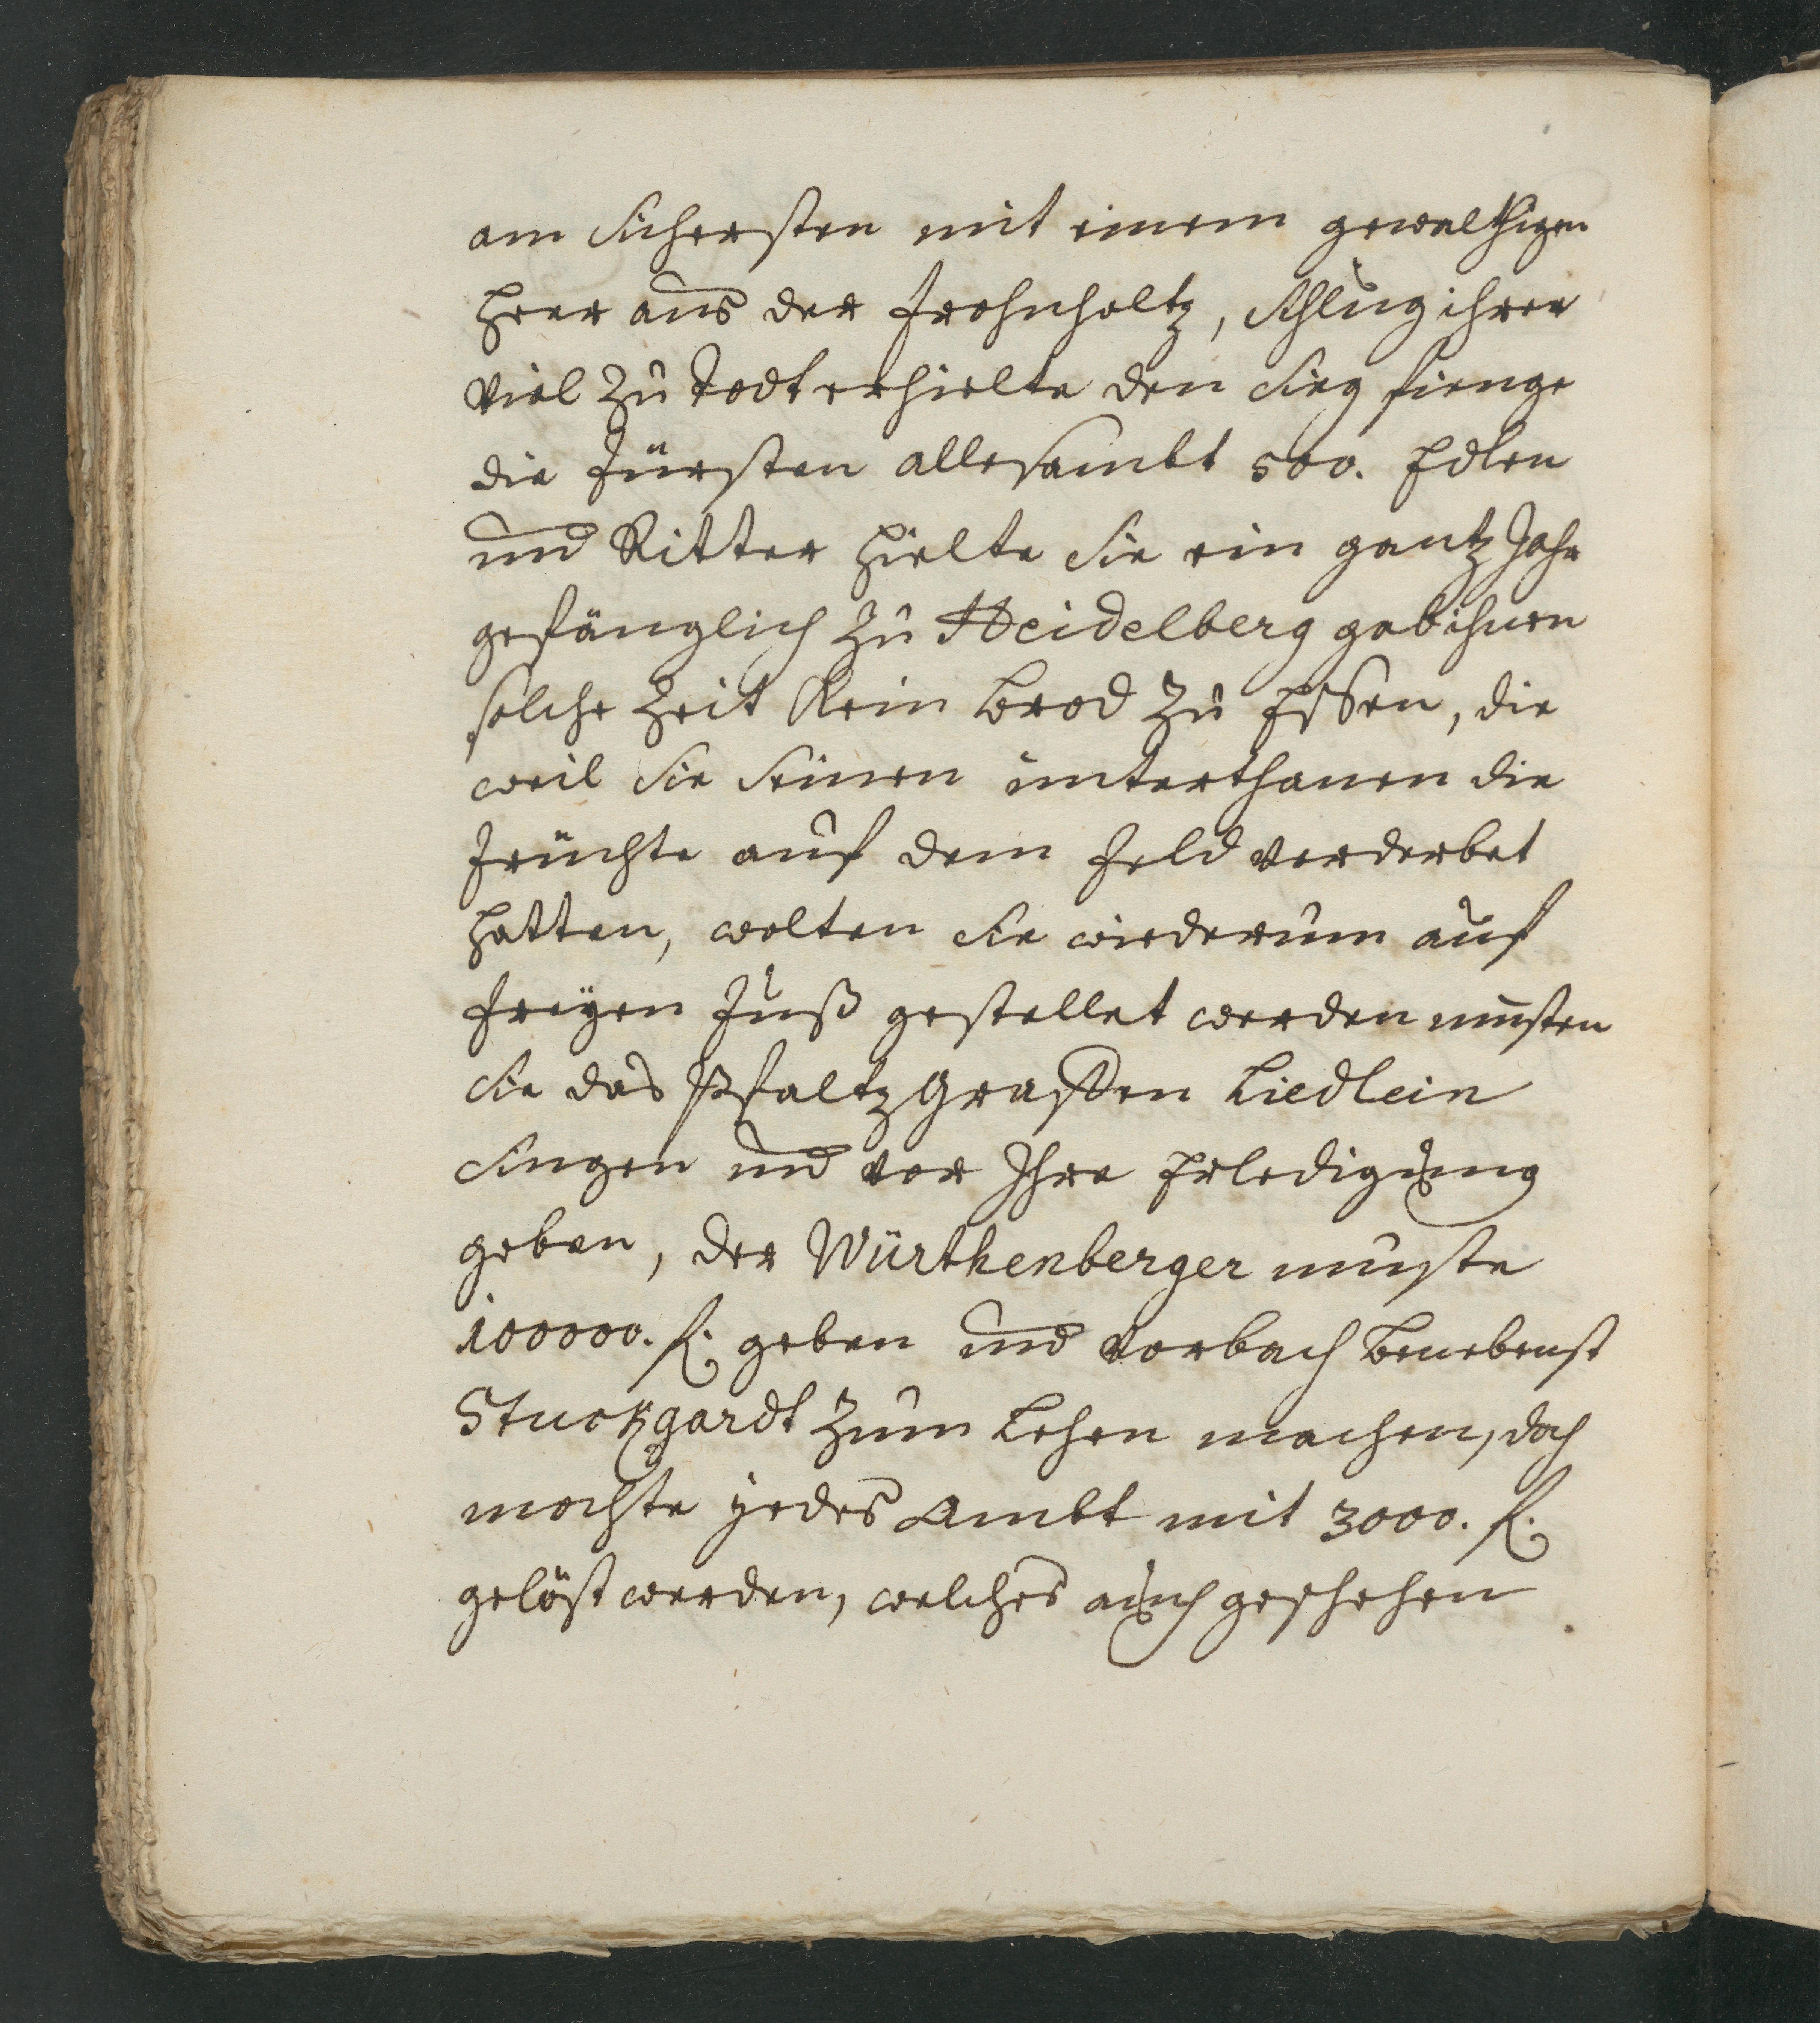 am sichersten mit einem gewalthigen
Heer aus der Frohnholtz, schlug ihrer
viel zu todt erhielte den Sieg fienge
die Fürsten allesambt 500. Edlen
und Ritter hielte sie ein gantz Jahr
gefänglich zu Heidelberg gab ihnen
solche Zeit kein brod zu Essen, die
weil sie seinen unterthanen die
früchte auf dem Feld verderbet
hatten, wolten sie wiederum auf
freyen Fuß gestellet werden musten
sie das PfaltzGraffen Liedlein
singen und vor Ihre Erledigung
geben, der Würthenberger muste
100000. fl. geben und Vorbach benebenst
Stuckgardt zum Lehen machen, doch
mochte jedes Ambt mit 3000. fl.
gelöst werden, welches auch geschehen